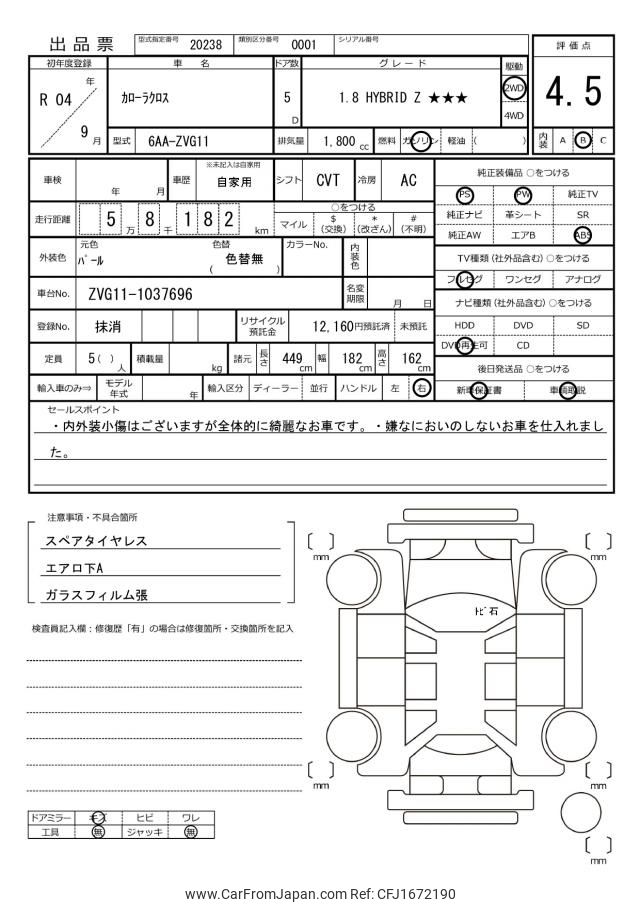 出品票
型式指定番号 20238 類別区分番号 0001 シリアル番号
評価点
4.5
内装 A B C
初年度登録 車名 ドア数 グレード 駆動
R 04 年 9 月
カローラクロス
5 D
1.8 HYBRID Z ★★★
2WD
4WD
型式 6AA-ZVG11 排気量 1,800 cc 燃料 ガソリン 軽油 ( )
車検 年 月 車歴 ※未記入は自家用 自家用 シフト CVT 冷房 AC
純正装備品 ○をつける
PS PW 純正TV
純正ナビ 革シート SR
純正AW エアB ABS
走行距離 5 万 8 千 1 8 2 km
○をつける
マイル $ (交換) * (改ざん) # (不明)
外装色 元色 パール 色替 ( 色替無 ) カラーNo. 内装色
TV種類(社外品含む) ○をつける
フルセグ ワンセグ アナログ
車台No. ZVG11-1037696 名変期限 月 日
ナビ種類(社外品含む) ○をつける
HDD DVD SD
DVD再生可 CD
登録No. 抹消 リサイクル預託金 12,160円預託済 未預託
定員 5( ) 人 積載量 kg 諸元 長さ 449 cm 幅 182 cm 高さ 162 cm
後日発送品 ○をつける
新車保証書 車輌取説
輸入車のみ⇒ モデル年式 年 輸入区分 ディーラー 並行 ハンドル 左 右
セールスポイント
・内外装小傷はございますが全体的に綺麗なお車です。・嫌なにおいのしないお車を仕入れまし
た。
注意事項・不具合箇所
スペアタイヤレス
エアロ下A
ガラスフィルム張
検査員記入欄：修復歴「有」の場合は修復箇所・交換箇所を記入
mm
mm
トビ石
mm
mm
mm
ドアミラー キズ ヒビ ワレ
工具 無 ジャッキ 無
www.CarFromJapan.com Ref: CFJ1672190